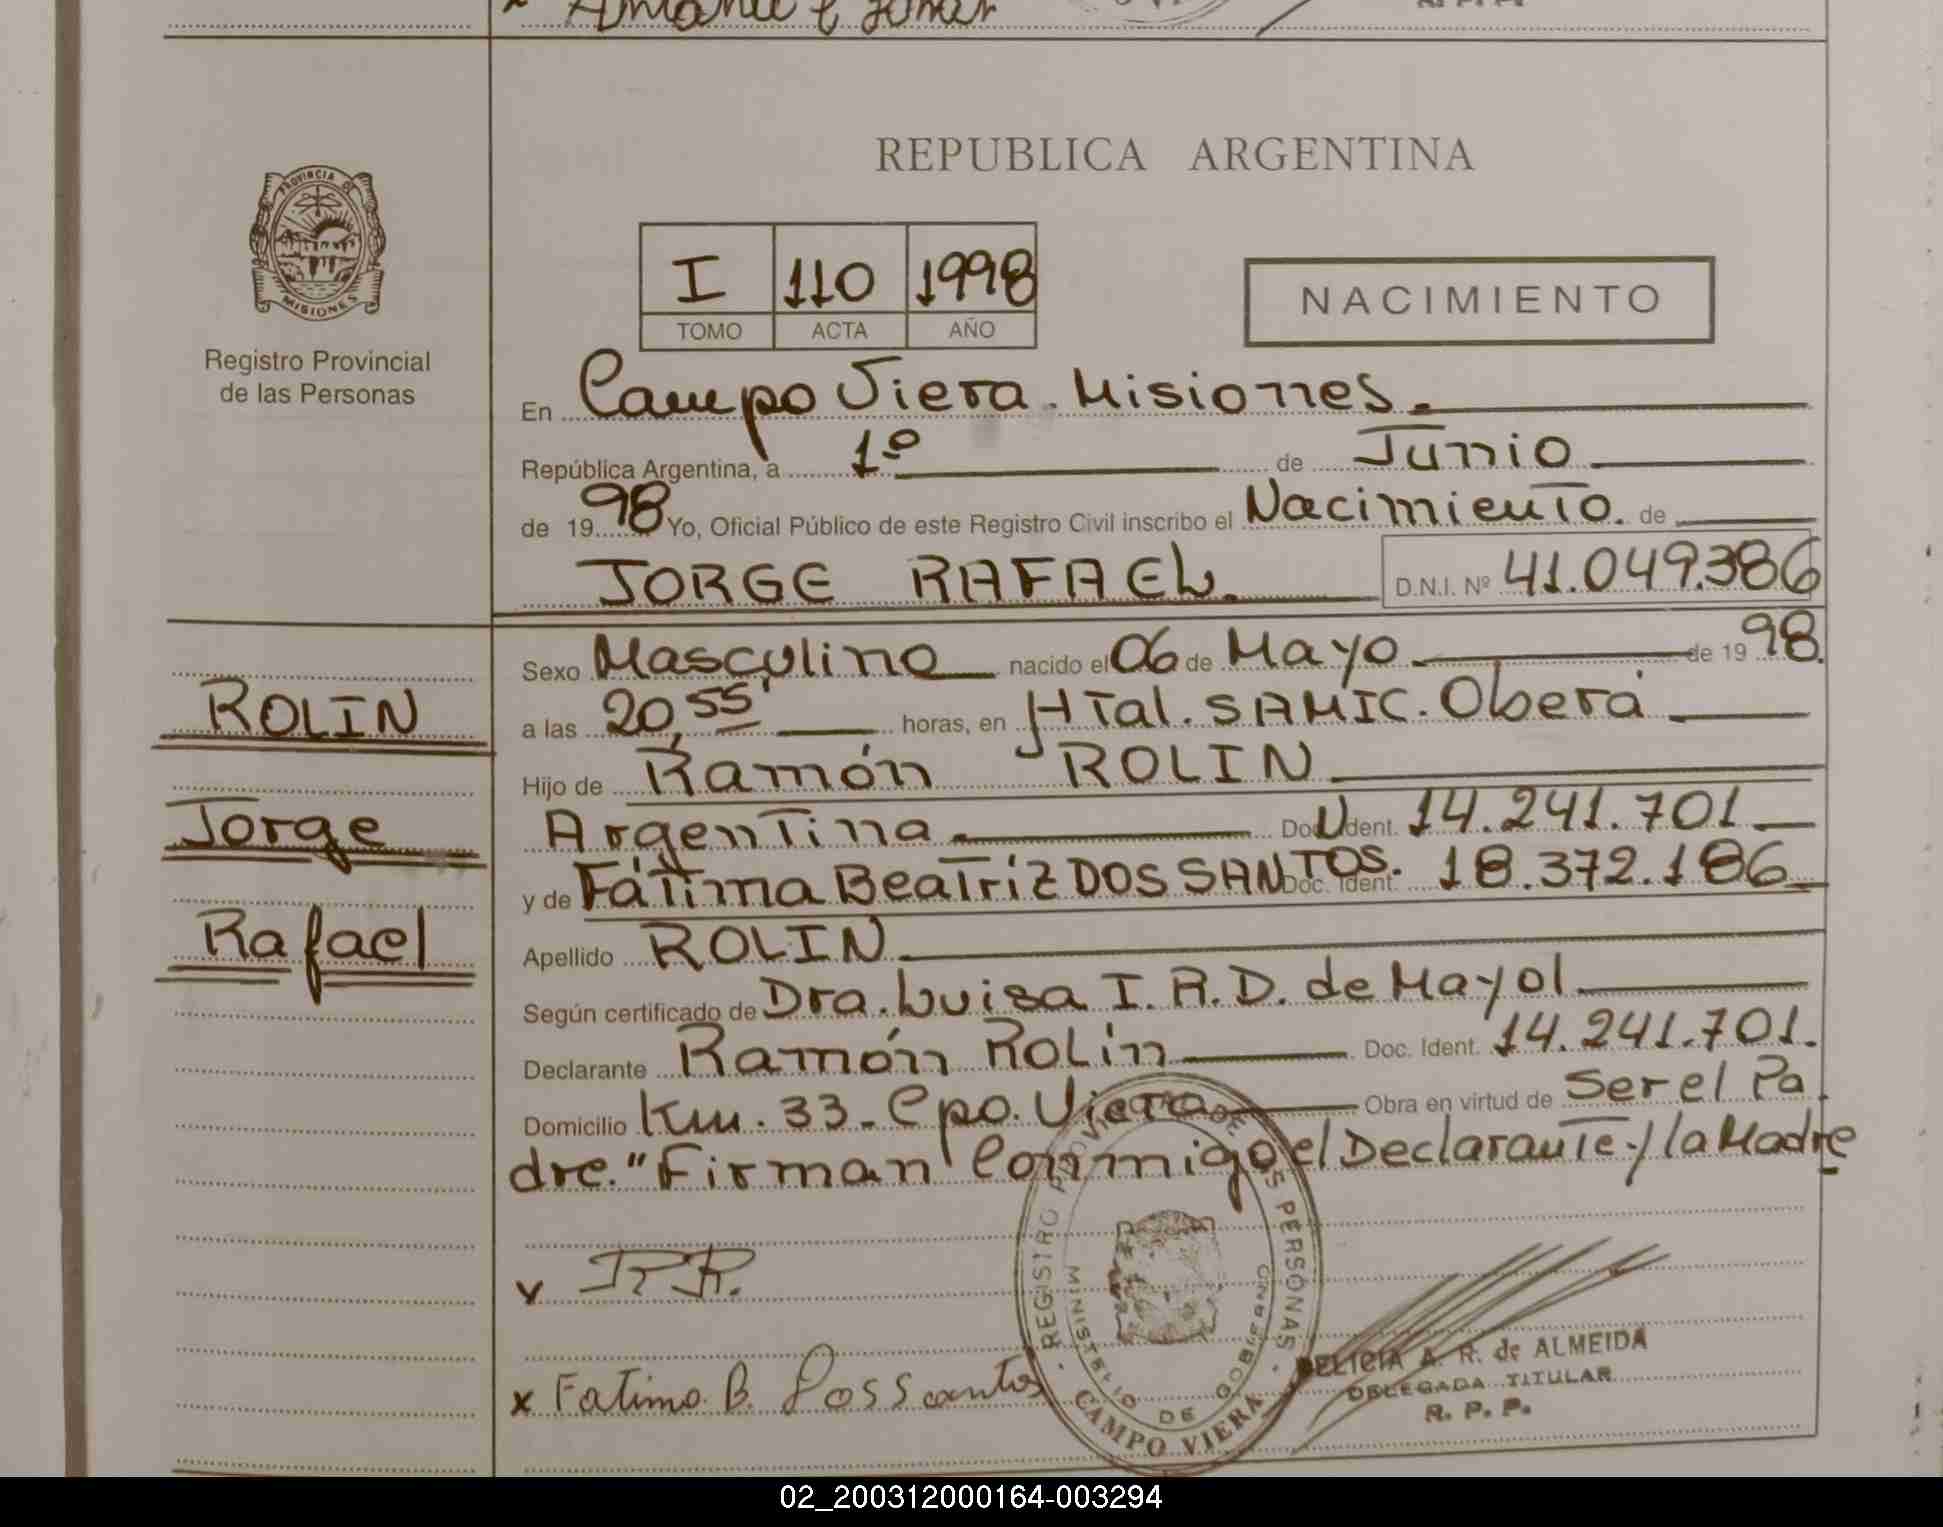 REPUBLICA ARGENTINA
PROVINCIA DE
MISIONES
Registro Provincial
de las Personas
I 110 1998
TOMO ACTA AÑO
NACIMIENTO
En Campo Viera. Misiones.
República Argentina, a 1º de Junio
de 1998 Yo, Oficial Público de este Registro Civil inscribo el Nacimiento. de
JORGE RAFAEL. D.N.I. Nº 41.049.386
ROLIN
Jorge
Rafael
Sexo Masculino nacido el 06 de Mayo de 1998.
a las 20,55' horas, en HTal. SAMIC. Oberá
Hijo de Ramón ROLIN
Argentina Doc. Ident. 14.241.701
y de Fátima Beatriz DOS SANTOS. Doc. Ident. 18.372.186
Apellido ROLIN
Según certificado de Dra. Luisa I. R. D. de Mayol
Declarante Ramón Rolín Doc. Ident. 14.241.701.
Domicilio Km. 33 - Cpo. Viera Obra en virtud de Ser el Pa
dre. "Firman Conmigo el Declarante y la Madre
x R.R.
x Fatima B. Dos Santos
REGISTRO PROVINCIAL DE LAS PERSONAS
MINISTERIO DE GOBIERNO
CAMPO VIERA
DELICIA A. R. de ALMEIDA
DELEGADA TITULAR
R. P. P.
02_200312000164-003294